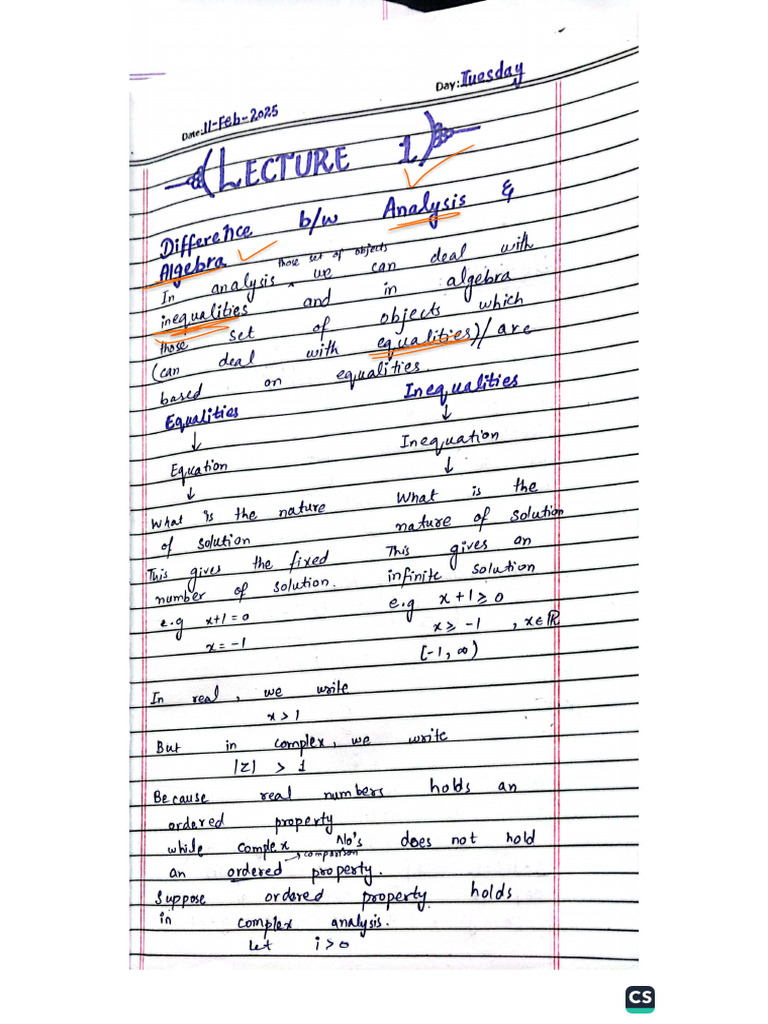 Day: Tuesday
Date: 11-Feb-2025
LECTURE 1
Difference b/w Analysis &
Algebra
those set of objects
In analysis ^ we can deal with
inequalities and in algebra
those set of objects which
(can deal with equalities)/are
based on equalities.
Equalities Inequalities
↓ ↓
Equation Inequation
↓ ↓
What is the nature What is the
of solution nature of solution
This gives the fixed This gives an
number of solution. infinite solution
e.g x+1=0 e.g x+1≥0
x=-1 x≥-1 , x∈ℝ
[-1, ∞)
In real, we write
x>1
But in complex, we write
|z| > 1
Because real numbers holds an
ordered property
while complex No's does not hold
→comparison
an ordered property.
Suppose ordered property holds
in complex analysis.
Let i>0
CS